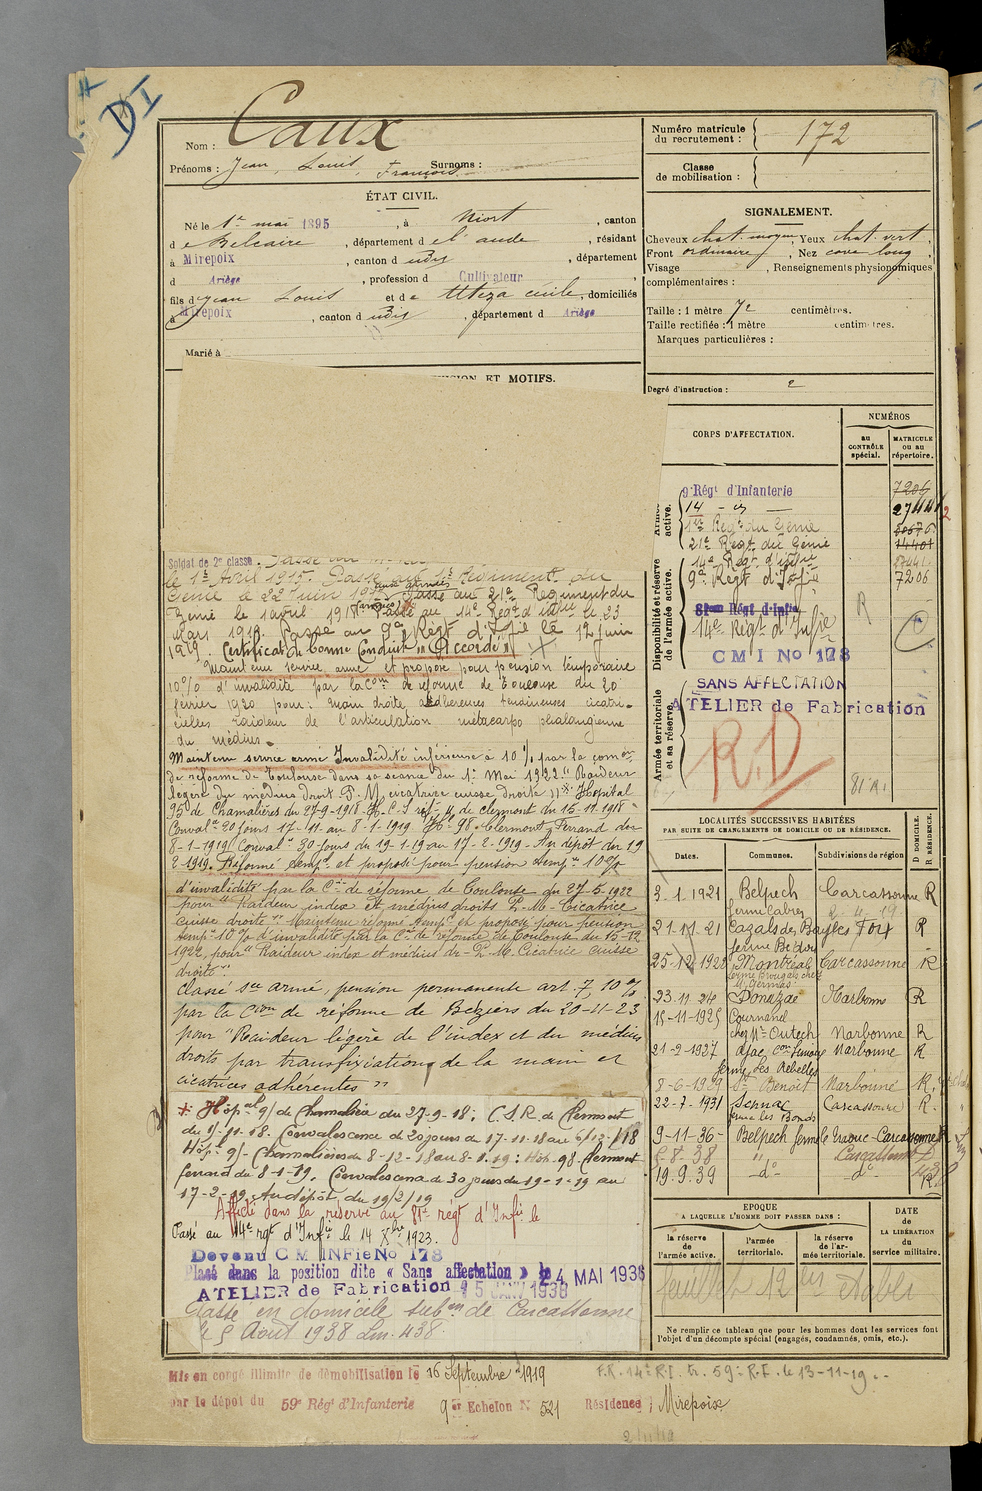 DI
Nom : Caux
Prénoms : Jean, Louis, François Surnoms :
Numéro matricule du recrutement : 172
Classe de mobilisation :
ÉTAT CIVIL.
Né le 1er mai 1895, à Niort, canton
de Belcaire, département de l'aude, résidant
à Mirepoix, canton d udis, département
d Ariège, profession d Cultivateur
fils de Jean Louis et de Uteza cecile, domiciliés
à Mirepoix, canton d udis, département d Ariège
Marié à
SIGNALEMENT.
Cheveux chat. moyen, Yeux chat. vert,
Front ordinaire, Nez cave long,
Visage , Renseignements physionomiques
complémentaires :
Taille : 1 mètre 72 centimètres.
Taille rectifiée : 1 mètre centimètres.
Marques particulières :
Degré d'instruction : 2
ET MOTIFS.
Soldat de 2e classe. Passé au
le 1er Avril 1915. Passé au 1er Régiment du
Génie le 22 Juin Passé au 21e Régiment du
Génie le 1 avril Passé au 14e Régt d'Infie le 23
Mars 1919. Passé au 9e Régt d'Infie le 12 juin
1919. Certificat de bonne Conduite "Accordé"
Maintenu service armé et proposé pour pension temporaire
10% d'invalidité par la Com de réforme de Toulouse du 20
février 1920 pour : main droite adhérences tendineuses cicatri-
cielles raideur de l'articulation métacarpo phalangienne
du médius.
Maintenu service armé Invalidité inférieure à 10% par la comon
de réforme de Toulouse dans sa séance du 1er Mai 1922 "Raideur
légère du médius droit P. M, cicatrice cuisse droite" * Hopital
95 de Chamalières du 27-9-1918 H.C.S de clermont du 16-11-1918
Convalce 20 jours 17-11 au 8-1-1919 Hô 98 Clermont Ferrand du
8-1-1919 Conval 30 jours du 19-1-19 au 17-2-1919. Au dépôt du 19
2-1919. Réformé tempe et proposé pour pension tempre 10%
d'invalidité par la Con de réforme de Toulouse du 27-5-1922
pour "Raideur index et médius droits P.M. Cicatrice
cuisse droite". Maintenu réformé tempe et proposé pour pension
tempre 10% d'invalidité par la Con de réforme de Toulouse du 15-12
1922, pour "Raideur index et médius dr- P.M. Cicatrice cuisse
droite".
Classé sce armé, pension permanente art. 7, 10%
par la Cion de réforme de Béziers du 20-11-23
pour "Raideur légère de l'index et du médius
droits par transfixiation de la main et
cicatrices adhérentes"
* Hopal 9/ de Chamalière du 27-9-18; C.S.R. de Clermont
du 15-11-18. Convalescence de 20 jours du 17-11-18 au 6/12-/18
Hopl 9/- Chamalières du 8-12-18 au 8-1-19 : Hôp 98 Clermont
ferrand du 8-1-19. Convalescence de 30 jours du 19-1-19 au
17-2-19. Au dépôt du 19/2/19
Affecté dans la réserve au 81e régt d'Infie le
Passé au 14e rgt d'Infie le 14 Xbre 1923.
Devenu C M INFie No 178
Placé dans la position dite « Sans affectation » le 24 MAI 1936
ATELIER de Fabrication 5 JANV 1938
Classé en domicile subon de Carcassonne
le 5 Août 1938 Lm. 438
CORPS D'AFFECTATION.
NUMÉROS
au CONTRÔLE spécial.
MATRICULE ou au répertoire.
Armée active.
9e Régt d'Infanterie 7206
14 - id - 27441
1er Régt du Génie
21e Régt du Génie 14401
14e Régt d'infie
9e Régt d'Infie 7206
Disponibilité et réserve de l'armée active.
81eme Régt d'Infie
14e Régt d'Infie
C M I No 178
R
Armée territoriale et sa réserve.
SANS AFFECTATION
ATELIER de Fabrication
R.D
LOCALITÉS SUCCESSIVES HABITÉES
PAR SUITE DE CHANGEMENTS DE DOMICILE OU DE RÉSIDENCE.
D DOMICILE. R RÉSIDENCE.
Dates. Communes. Subdivisions de région
3-1-1921 Belpech Carcassonne R
ferme Cabrey
21-11-21 Cazals des Bayles Foix R
25-12-1922 Montréal Carcassonne R
23-11-24 Donazac Narbonne R
15-11-1925 Cournanel
chez Mr Outech Narbonne R
21-2-1927 Ajac Narbonne R
ferme les Rebelles
8-6-1929 St Benoit Narbonne R
22-7-1931 Seignac Carcassonne R.
9-11-36- Belpech ferme Carcassonne R
5-8-38 " Carcassonne
19-9.39 -do- do R
EPOQUE
A LAQUELLE L'HOMME DOIT PASSER DANS :
DATE DE LA LIBÉRATION du service militaire.
la réserve de l'armée active.
l'armée territoriale.
la réserve de l'armée territoriale.
feuillet 12 bis établi
Ne remplir ce tableau que pour les hommes dont les services font
l'objet d'un décompte spécial (engagés, condamnés, omis, etc.).
Mis en congé illimité de démobilisation le 16 Septembre 1919
par le dépôt du 59e Régt d'Infanterie 9er Echelon N° 521 Résidence : Mirepoix
F.R. 14e R.I. tr. 59e R.I. le 13-11-19.
2/11/19